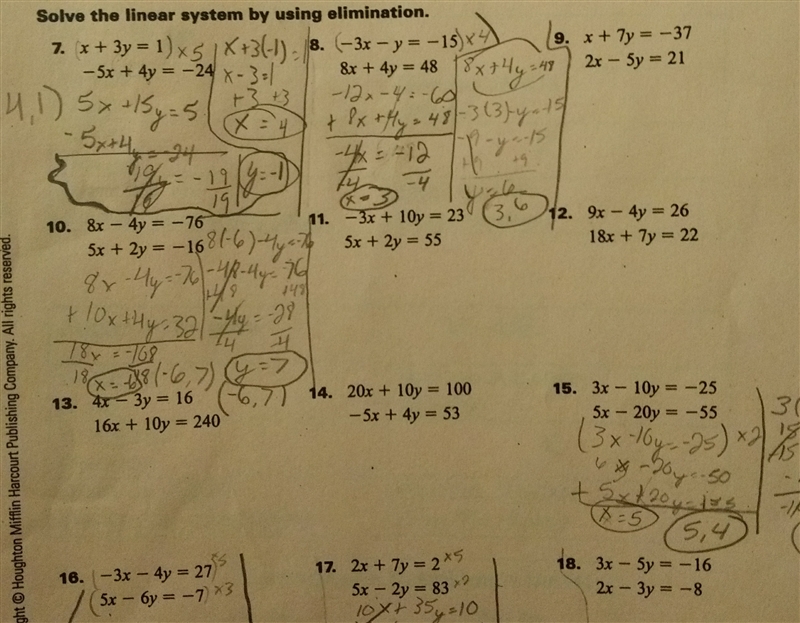 Solve the linear system by using elimination.
7. (x + 3y = 1) ×5
−5x + 4y = −24
4,1)
5x + 15y = 5
-5x+4y = -24
19y = -19
19
y=-1
x+3(-1)=1
x-3=1
+3 +3
x = 4
8. (−3x − y = −15) ×4
8x + 4y = 48
-12x-4=-60
+ 8x+4y=48
-4x = -12
-4 -4
x=3
8x+4y=48
-3(3)-y=-15
-9-y=-15
+9 +9
y=6
3,6
9. x + 7y = −37
2x − 5y = 21
10. 8x − 4y = −76
5x + 2y = −16
8x -4y=-76
+10x+4y=32
18x = -168
18 18
x=-6
(-6,7)
8(-6)-4y=-76
-48-4y=-76
+48 +48
-4y=-28
-4 -4
y=7
(-6,7)
11. −3x + 10y = 23
5x + 2y = 55
12. 9x − 4y = 26
18x + 7y = 22
13. 4x − 3y = 16
16x + 10y = 240
14. 20x + 10y = 100
−5x + 4y = 53
15. 3x − 10y = −25
5x − 20y = −55
(3x-10y=-25) ×2
-20y=-50
+ 5x+20y=
x=5
5,4
3(
15
-15
16. (−3x − 4y = 27) ×5
(5x − 6y = −7) ×3
17. 2x + 7y = 2 ×5
5x − 2y = 83 ×2
10x+35y=10
18. 3x − 5y = −16
2x − 3y = −8
ght © Houghton Mifflin Harcourt Publishing Company. All rights reserved.